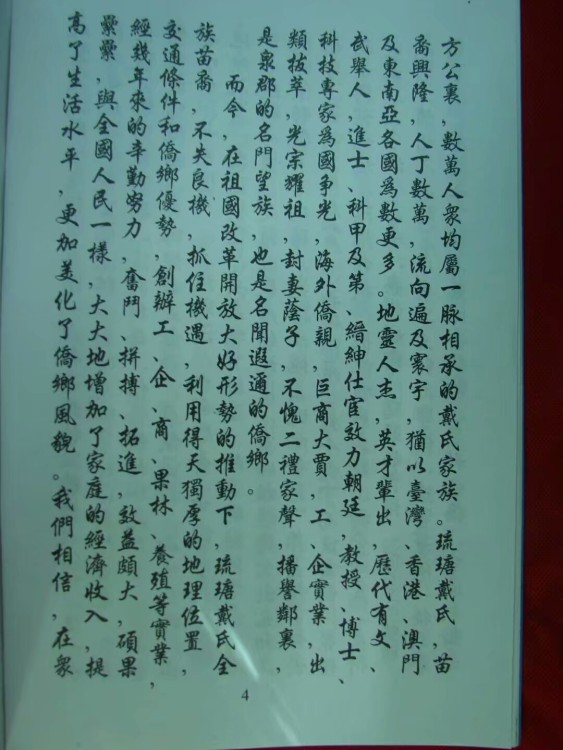 方公裏，數萬人衆均屬一脉相承的戴氏家族。琉瑭戴氏，苗
裔興隆，人丁數萬，流向遍及寰宇，猶以臺灣、香港、澳門
及東南亞各國爲數更多。地靈人杰，英才輩出，歷代有文、
武舉人，進士、科甲及第、縉紳仕宦效力朝廷，教授、博士、
科技專家爲國爭光，海外僑親，巨商大賈，工、企實業，出
類拔萃，光宗耀祖，封妻蔭子，不愧二禮家聲，播譽鄰裏，
是泉郡的名門望族，也是名聞遐邇的僑鄉。
而今，在祖國改革開放大好形勢的推動下，琉瑭戴氏全
族苗裔，不失良機，抓住機遇，利用得天獨厚的地理位置，
交通條件和僑鄉優勢，創辦工、企、商、果林、養殖等實業，
經幾年來的辛勤努力，奮鬥、拼搏、拓進，效益頗大，碩果
纍纍，與全國人民一樣，大大地增加了家庭的經濟收入，提
高了生活水平，更加美化了僑鄉風貌。我們相信，在衆
4